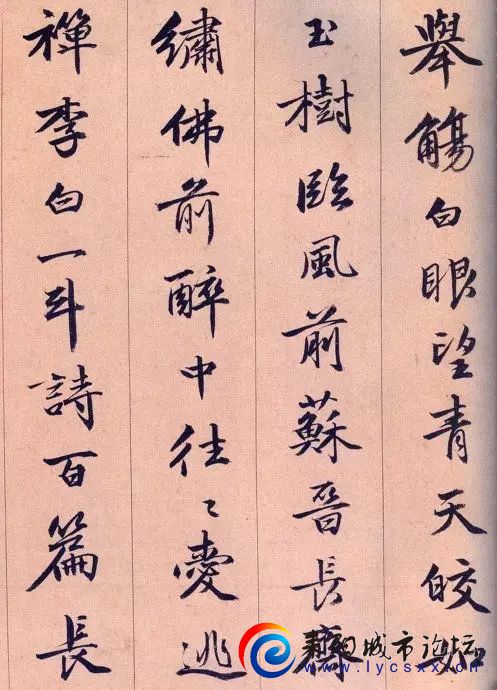 舉觴白眼望青天皎如
玉樹臨風前蘇晉長齋
繡佛前醉中往〻愛逃
禪李白一斗詩百篇長
莱阳城市论坛